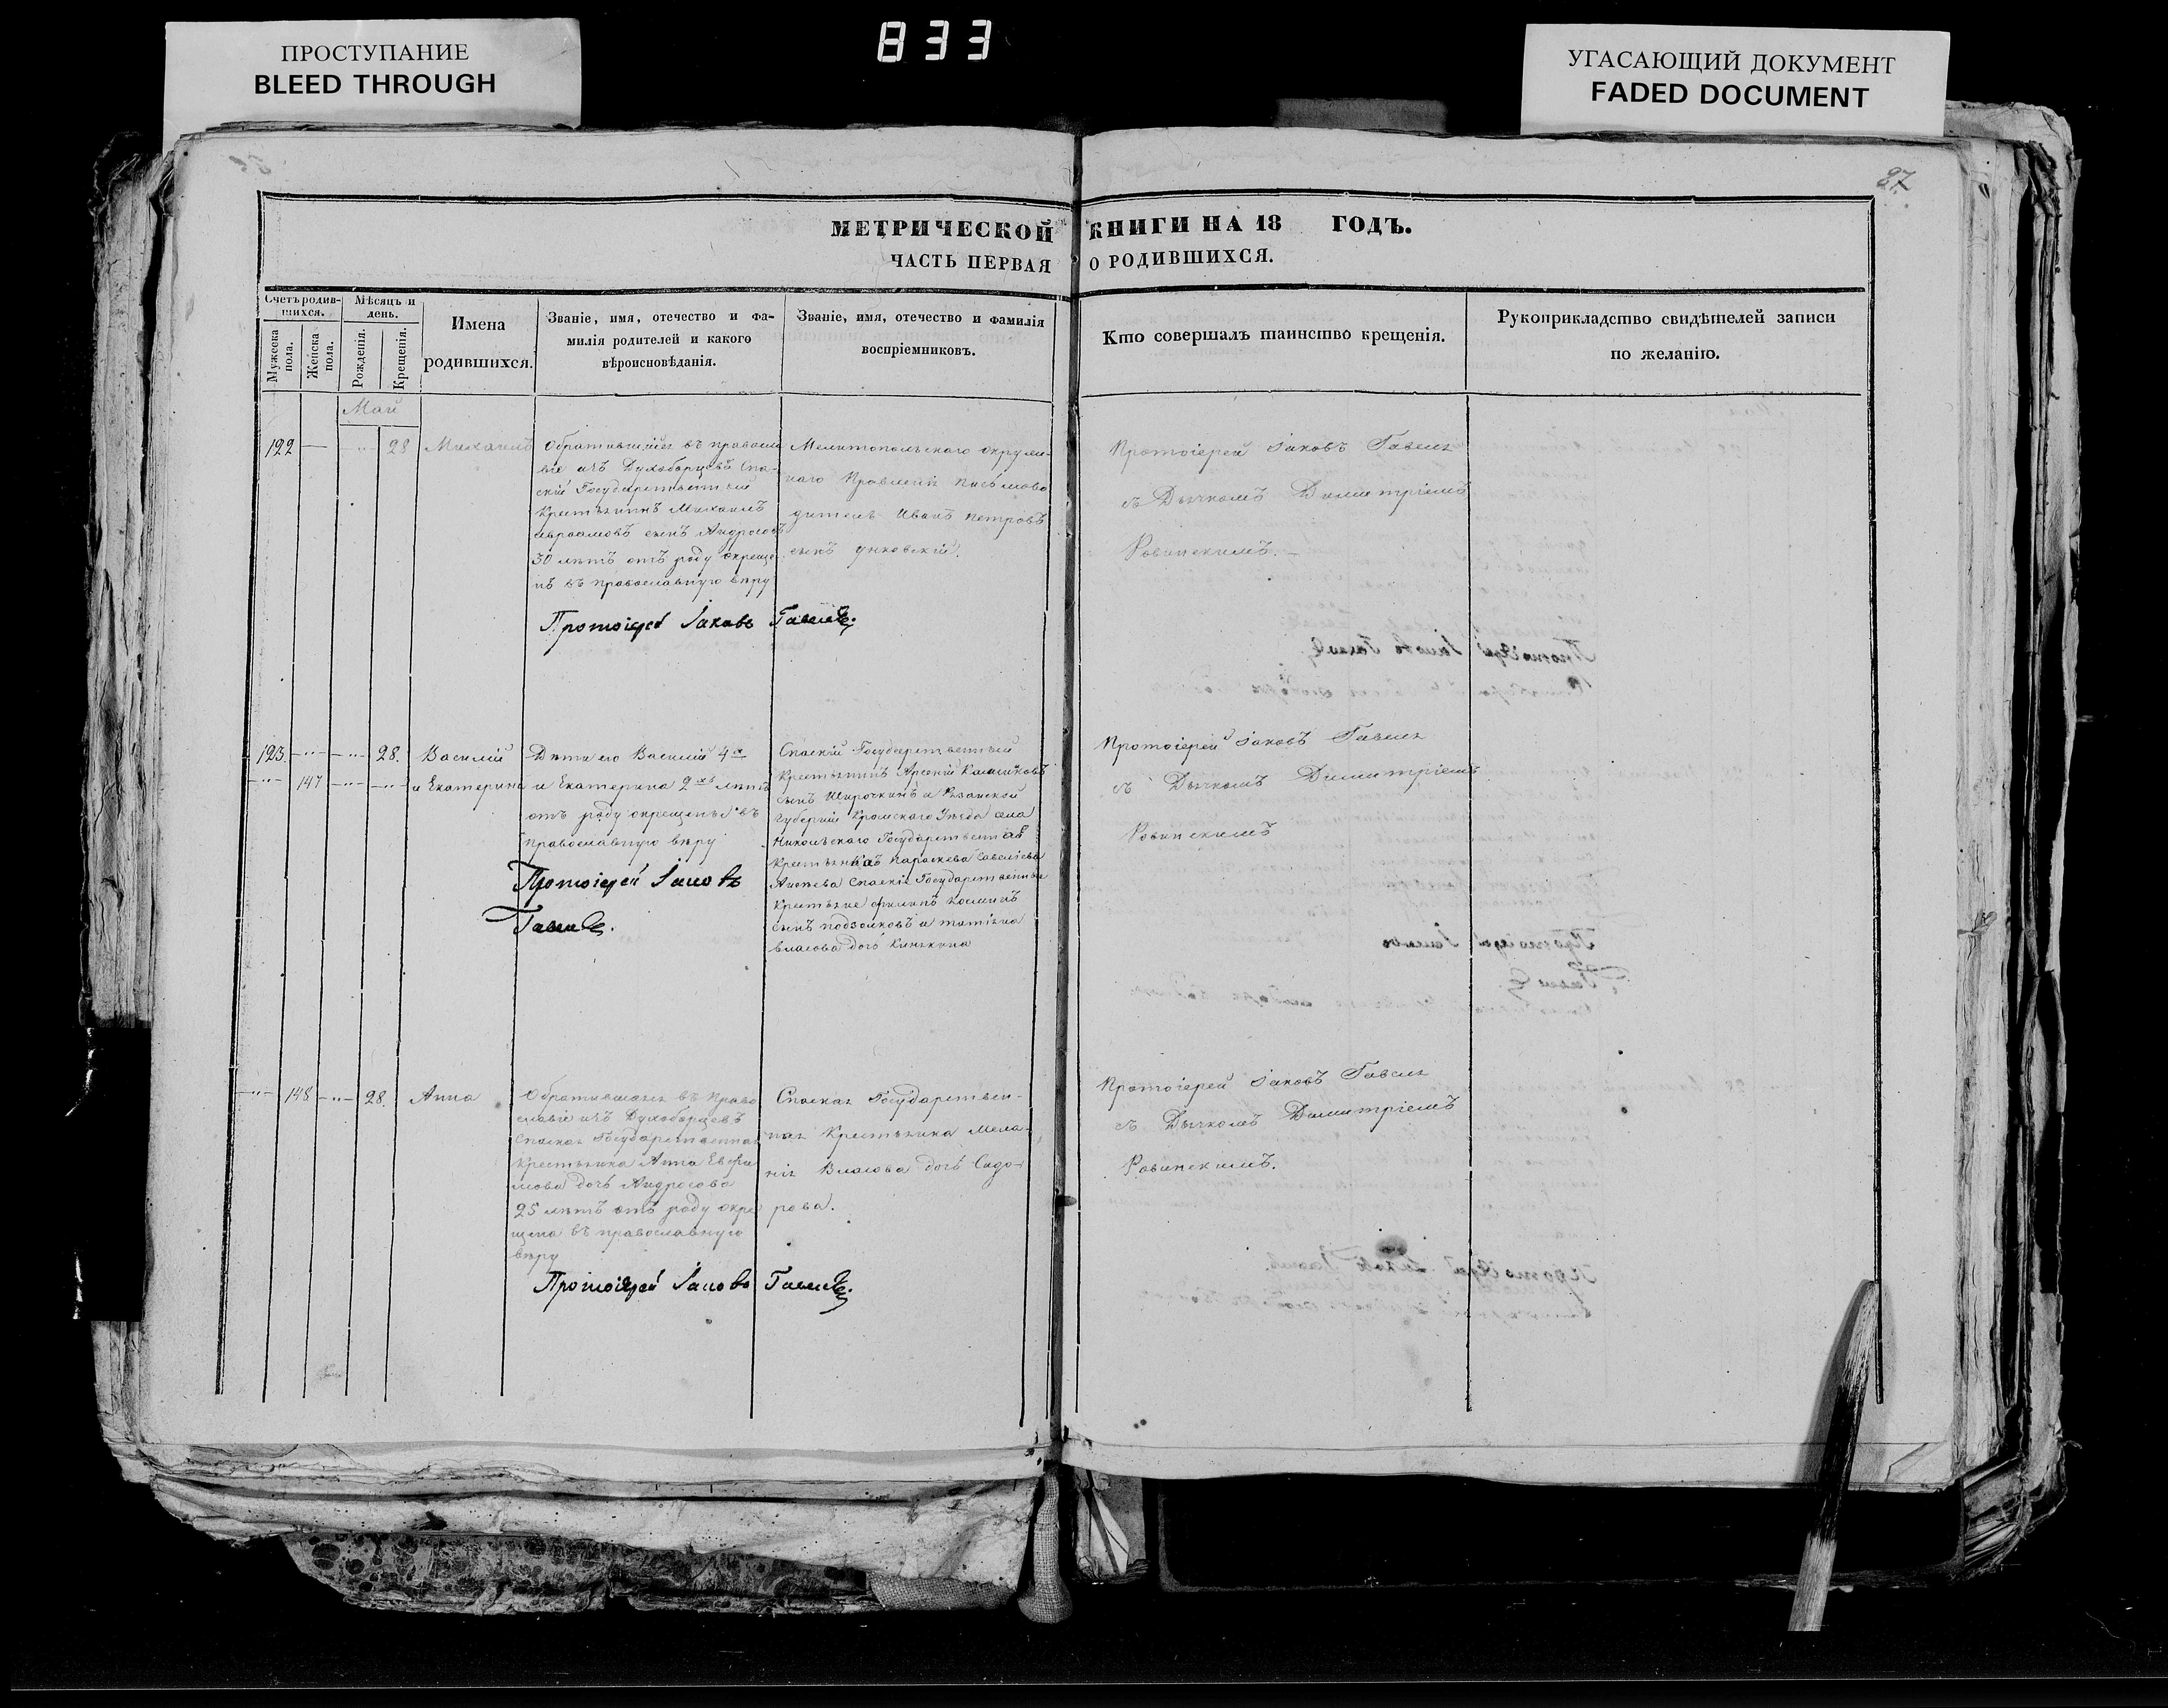 ПРОСТУПАНИЕ
BLEED THROUGH
833
УГАСАЮЩИЙ ДОКУМЕНТ
FADED DOCUMENT
27
МЕТРИЧЕСКОЙ КНИГИ НА 18 ГОДЪ.
ЧАСТЬ ПЕРВАЯ О РОДИВШИХСЯ.
Счетъ родив-
шихся.
Мужеска пола.
Женска пола.
Мѣсяцъ и
день.
Рожденія.
Крещенія.
Имена
родившихся.
Званіе, имя, отечество и фа-
милія родителей и какого
вѣроисповѣданія.
Званіе, имя, отечество и фамилія
воспріемниковъ.
Кто совершалъ таинство крещенія.
Рукоприкладство свидѣтелей записи
по желанію.
Май
122
28
Михаилъ
Обратившійся въ правосла
віе изъ Духоборцевъ Спа-
скій Государственный
Крестьянинъ Михаилъ
Авраамовъ сынъ Андросовъ
30 лѣтъ отъ роду окреще
нъ въ православную вѣру
Мелитопольскаго окруж-
наго Правленія письмово
дитель Иванъ Петровъ
сынъ
Протоіерей Іаковъ Гавель
съ Дьячкомъ Димитріемъ
Ровинскимъ.
Протоіерей Іаковъ
123
28.
Василій
147
и Екатерина
Дѣти его Василій 4х
и Екатерина 2хъ лѣтъ
отъ роду окрещены въ
православную вѣру
Спаскій Государственный
Крестьянинъ Арсеній
сынъ Широчкинъ и
Губерніи Уѣзда села
Никольскаго Государственная
Крестьянка Параскева Савеліева
Спаскіе Государственные
Крестьяне Филипъ
сынъ и
Власова дочь
Протоіерей Іаковъ Гавель
съ Дьячкомъ Димитріемъ
Ровинскимъ
Протоіерей Іаковъ
148
28.
Анна
Обратившаяся въ Право
славіе изъ Духоборцевъ
Спаская Государственная
Крестьянка Анна Евфи
мова дочь Андросова
25 лѣтъ отъ роду окре
щена въ православную
вѣру
Спаская Государствен-
ная Крестьянка Мела-
нія Власова дочь Сидо-
рова.
Протоіерей Іаковъ Гавель
съ Дьячкомъ Димитріемъ
Ровинскимъ.
Протоіерей Іаковъ